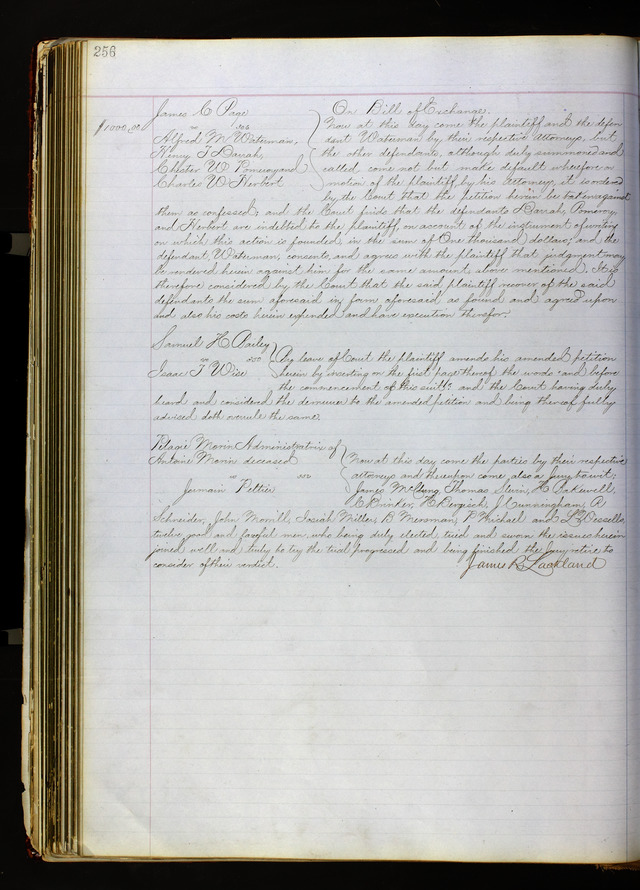 256
James C Page On Bill of Exchange.
$1000,00 vs 205 Now at this day come the plaintiff and the defen
Alfred M Waterman, dant Waterman by their respective attorneys, but
Henry T Darrah, the other defendants, although duly summoned and
Chester W Pomeroy and called come not but make default wherefore on
Charles W Herbert motion of the plaintiff by his Attorney, it is ordered
by the Court that the petition herein be taken against
them as confessed; and the Court finds that the defendants Darrah, Pomeroy,
and Herbert are indebted to the plaintiff, on account of the instrument of writing
on which this action is founded, in the sum of One thousand dollars; and the
defendant Waterman, consents, and agrees with the plaintiff that judgment may
be rendered herein against him for the same amount above mentioned. It is
therefore considered by the Court that the said plaintiff recover of the said
defendants the sum aforesaid in form aforesaid, as found and agreed upon
and also his costs herein expended and have execution therefor.
Samuel H Bailey
vs 250 By leave of Court the plaintiff amends his amended petition
Isaac T Wise herein by inserting on the first page thereof the words "and before
the commencement of this suit" and the Court having duly
heard and considered the demurrer to the amended petition and being thereof fully
advised doth overrule the same.
Pelagie Morin Administratrix of
Antoine Morin deceased Now at this day come the parties by their respective
vs attorneys and thereupon come also a Jury to wit;
Jermain Peltier James McClung, Thomas Stevin, H Bakewell,
C Brinker, H Bergesch, J Cunningham, R
Schneider, John Morrith, Josiah Miller, B Mersman, P Michael and L Z Dessella
twelve good and lawful men who being duly elected, tried and sworn the issues herein
joined well and truly to try the trial progressed and being finished the Jury retire to
consider of their verdict. James R Lackland